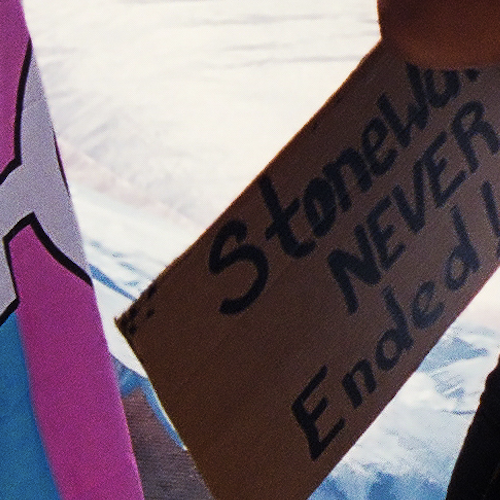 Stonewa
NEVER
Ended